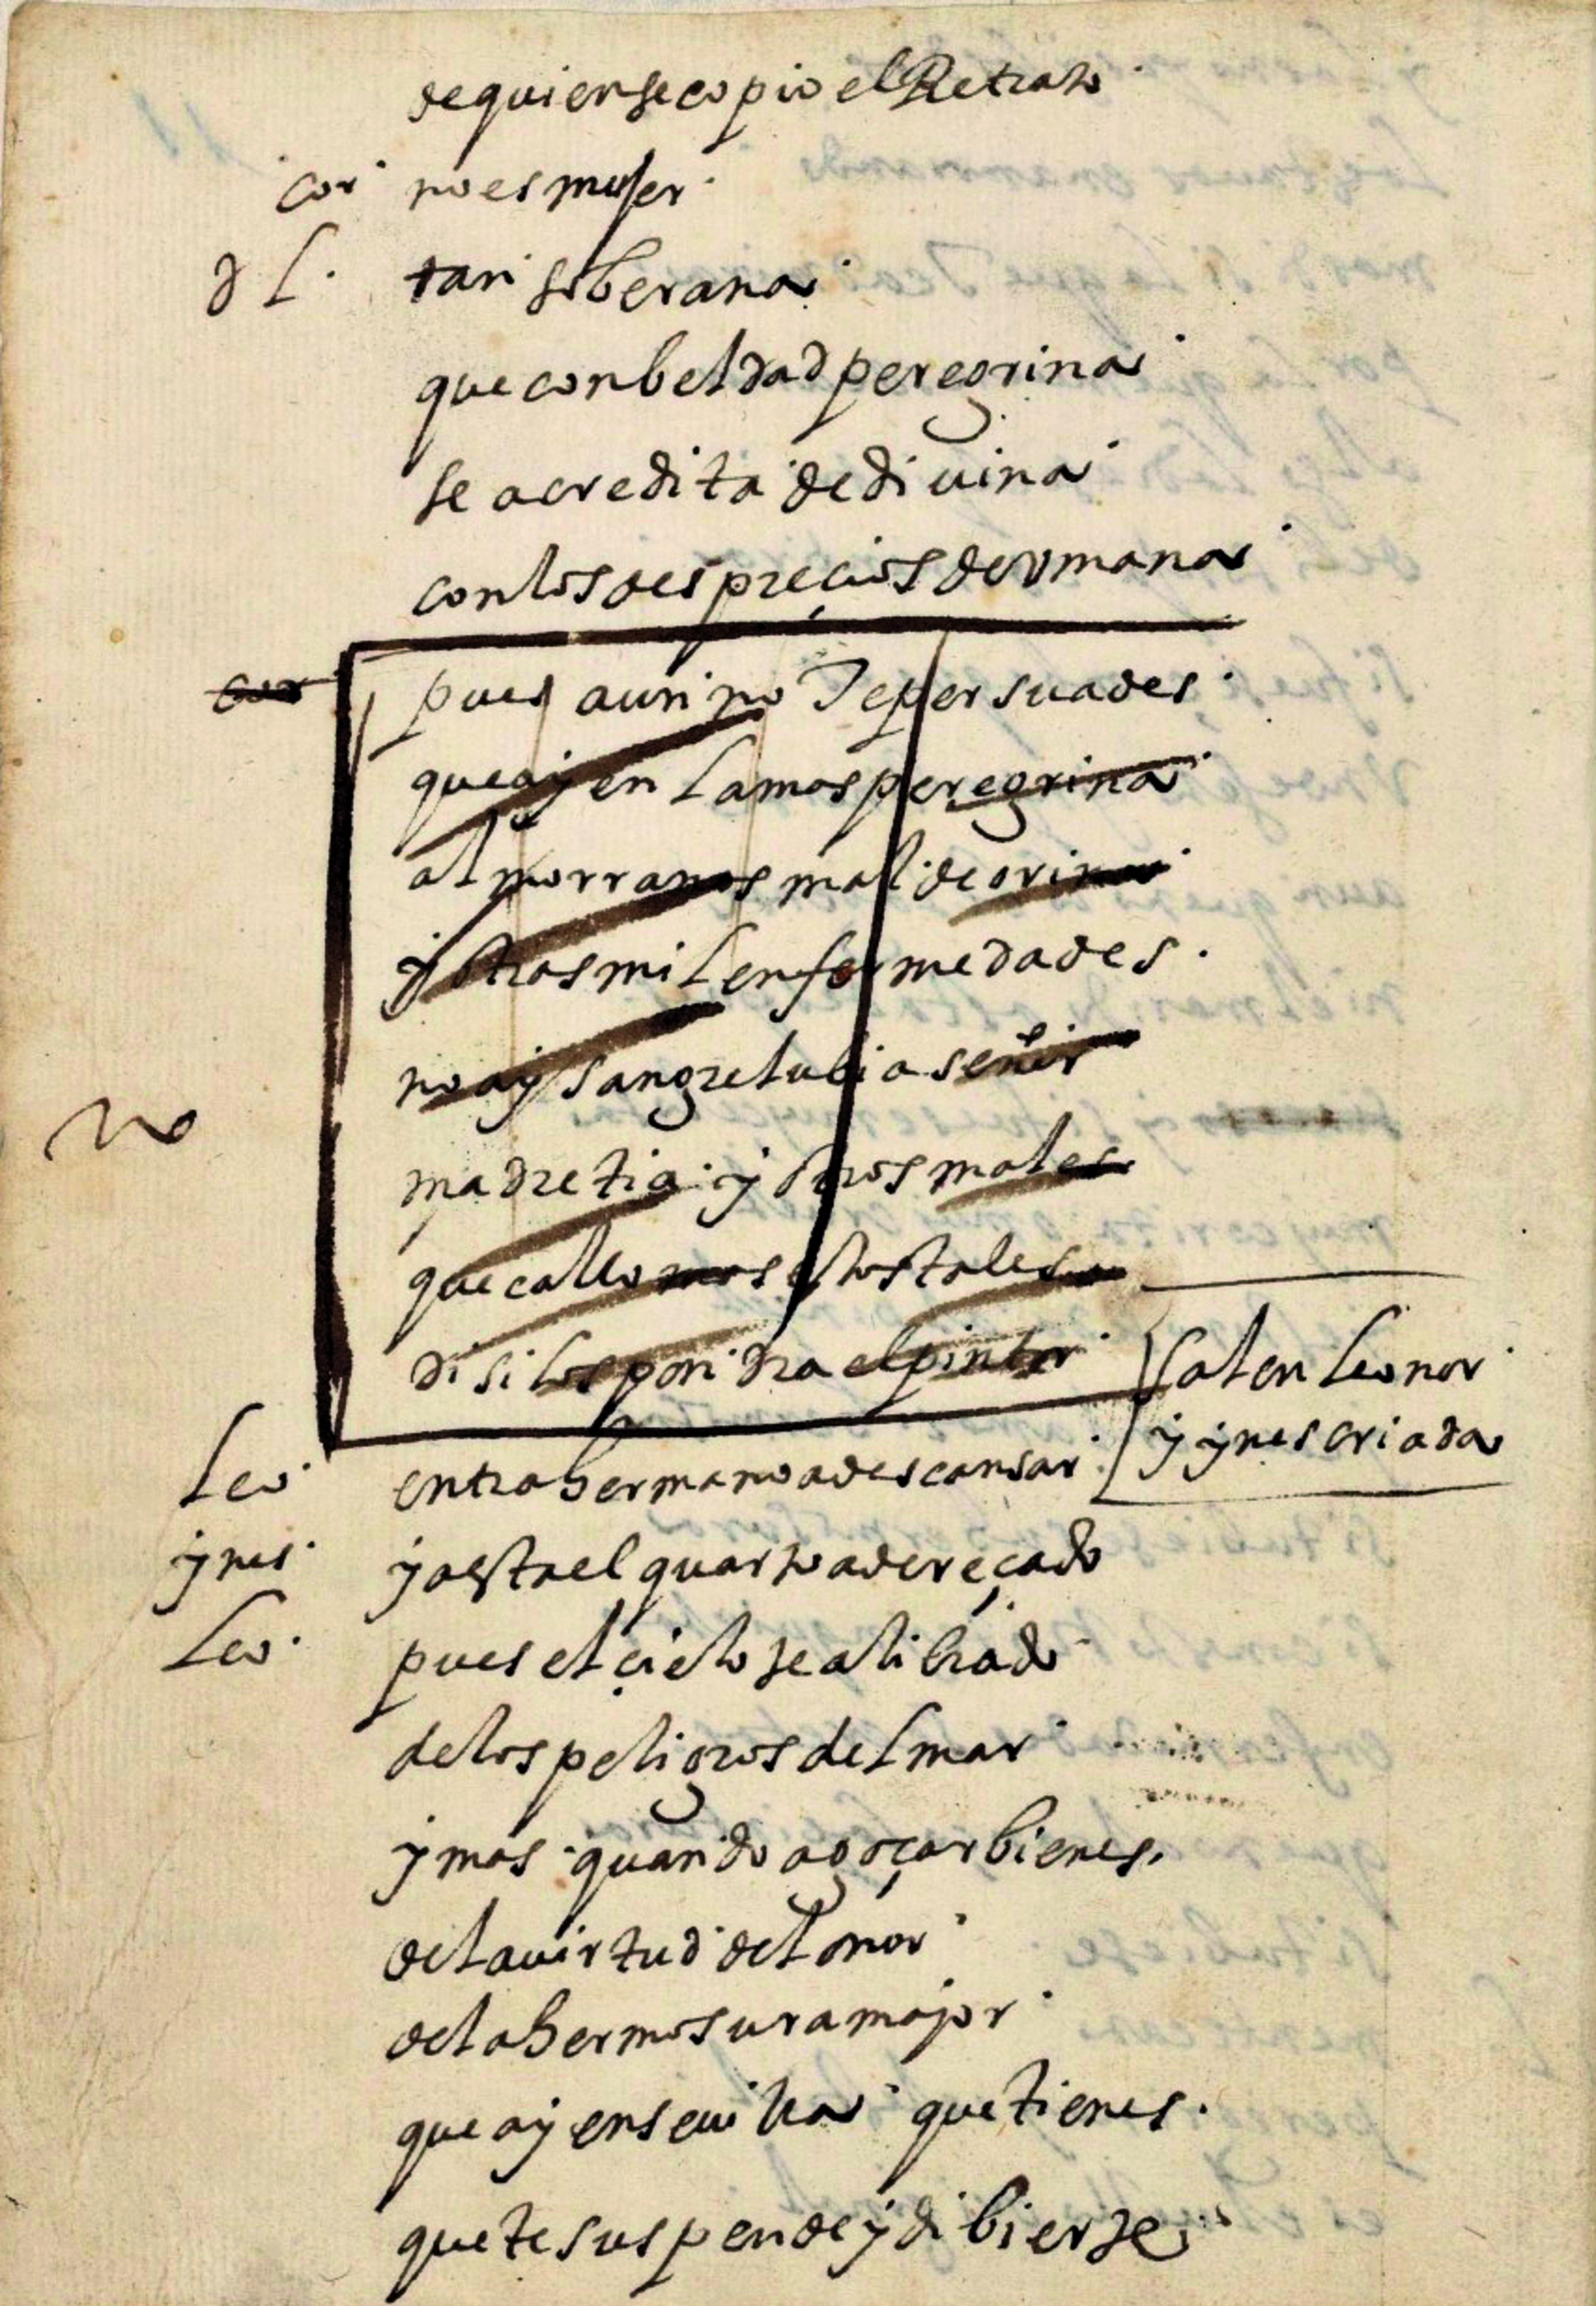 de quien se copio el Retrato
cor no es mujer
d L. tan soberana
que con beldad peregrina
se acredita de diuina
con los despreçios de vmana
cor pues aun no Te persuades
que ay en la mas peregrina
almorranas mal de orina
y otras mil enfermedades.
no ay sangre lubia señor
no
madre tia y otros males
que callo mas estos tales
di si los pondra el pintor
salen leonor
y ynes criada
Leo. entra hermano a descansar
ynes. ya esta el quarto adereçado
Leo. pues el çielo te a librado
de los peligros del mar
y mas quando a goçar bienes,
de la uirtud del onor
de la hermosura mayor
que ay en seuilla que tienes.
que te suspende y dibierte